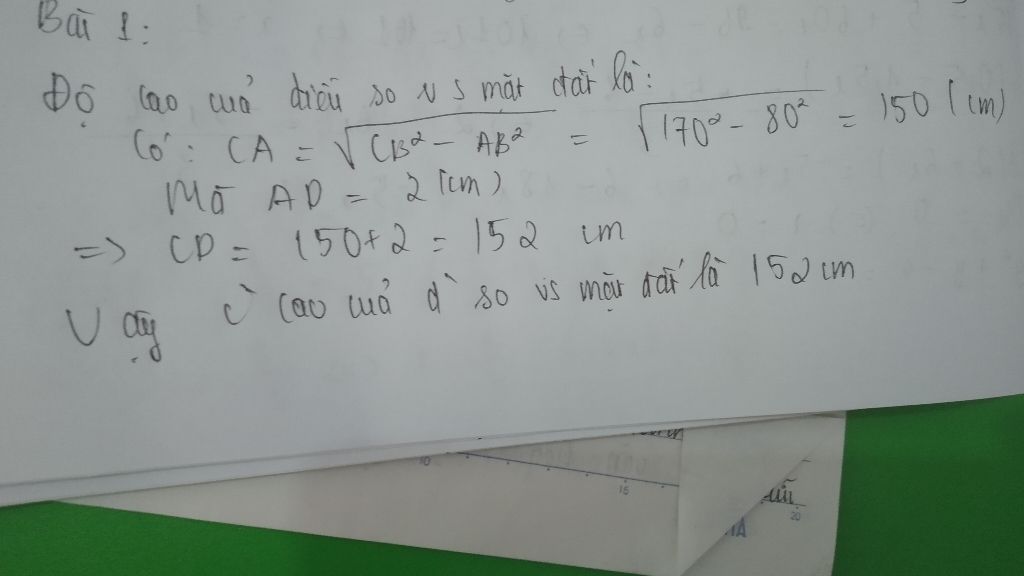 Bài 1:
Độ cao cuả diều so vs mặt đất là:
Có: CA = √CB² - AB² = √170² - 80² = 150 (cm)
Mà AD = 2 (cm)
=> CD = 150+2 = 152 cm
Vậy cao cuả d` so vs mặt đất là 152cm
10
15
20